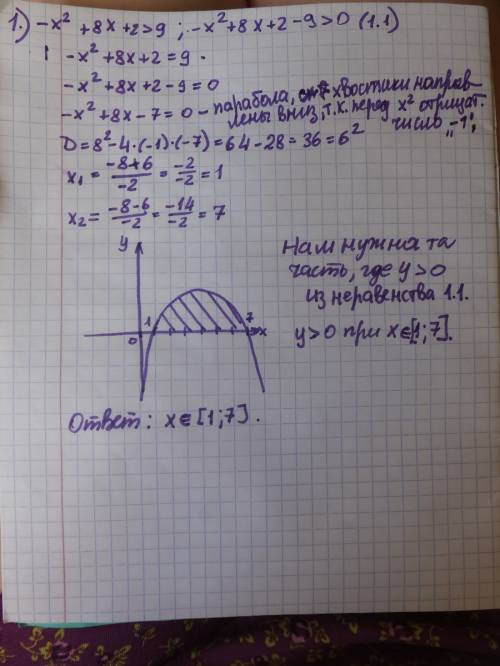 1.) -x² +8x+2>9 ; -x²+8x+2-9>0 (1.1)
-x²+8x+2=9.
-x²+8x+2-9=0
-x²+8x-7=0 - парабола, хвостики направ-
лены вниз, т.к. перед x² отрицат.
число „-1“,
D=8²-4·(-1)·(-7)=64-28=36=6²
x₁= (-8+6)/(-2) = (-2)/(-2) = 1
x₂= (-8-6)/(-2) = (-14)/(-2) = 7
y
Нам нужна та
часть, где y>0
из неравенства 1.1.
1 7
0 x
y>0 при x∈[1;7].
Ответ: x∈[1;7].